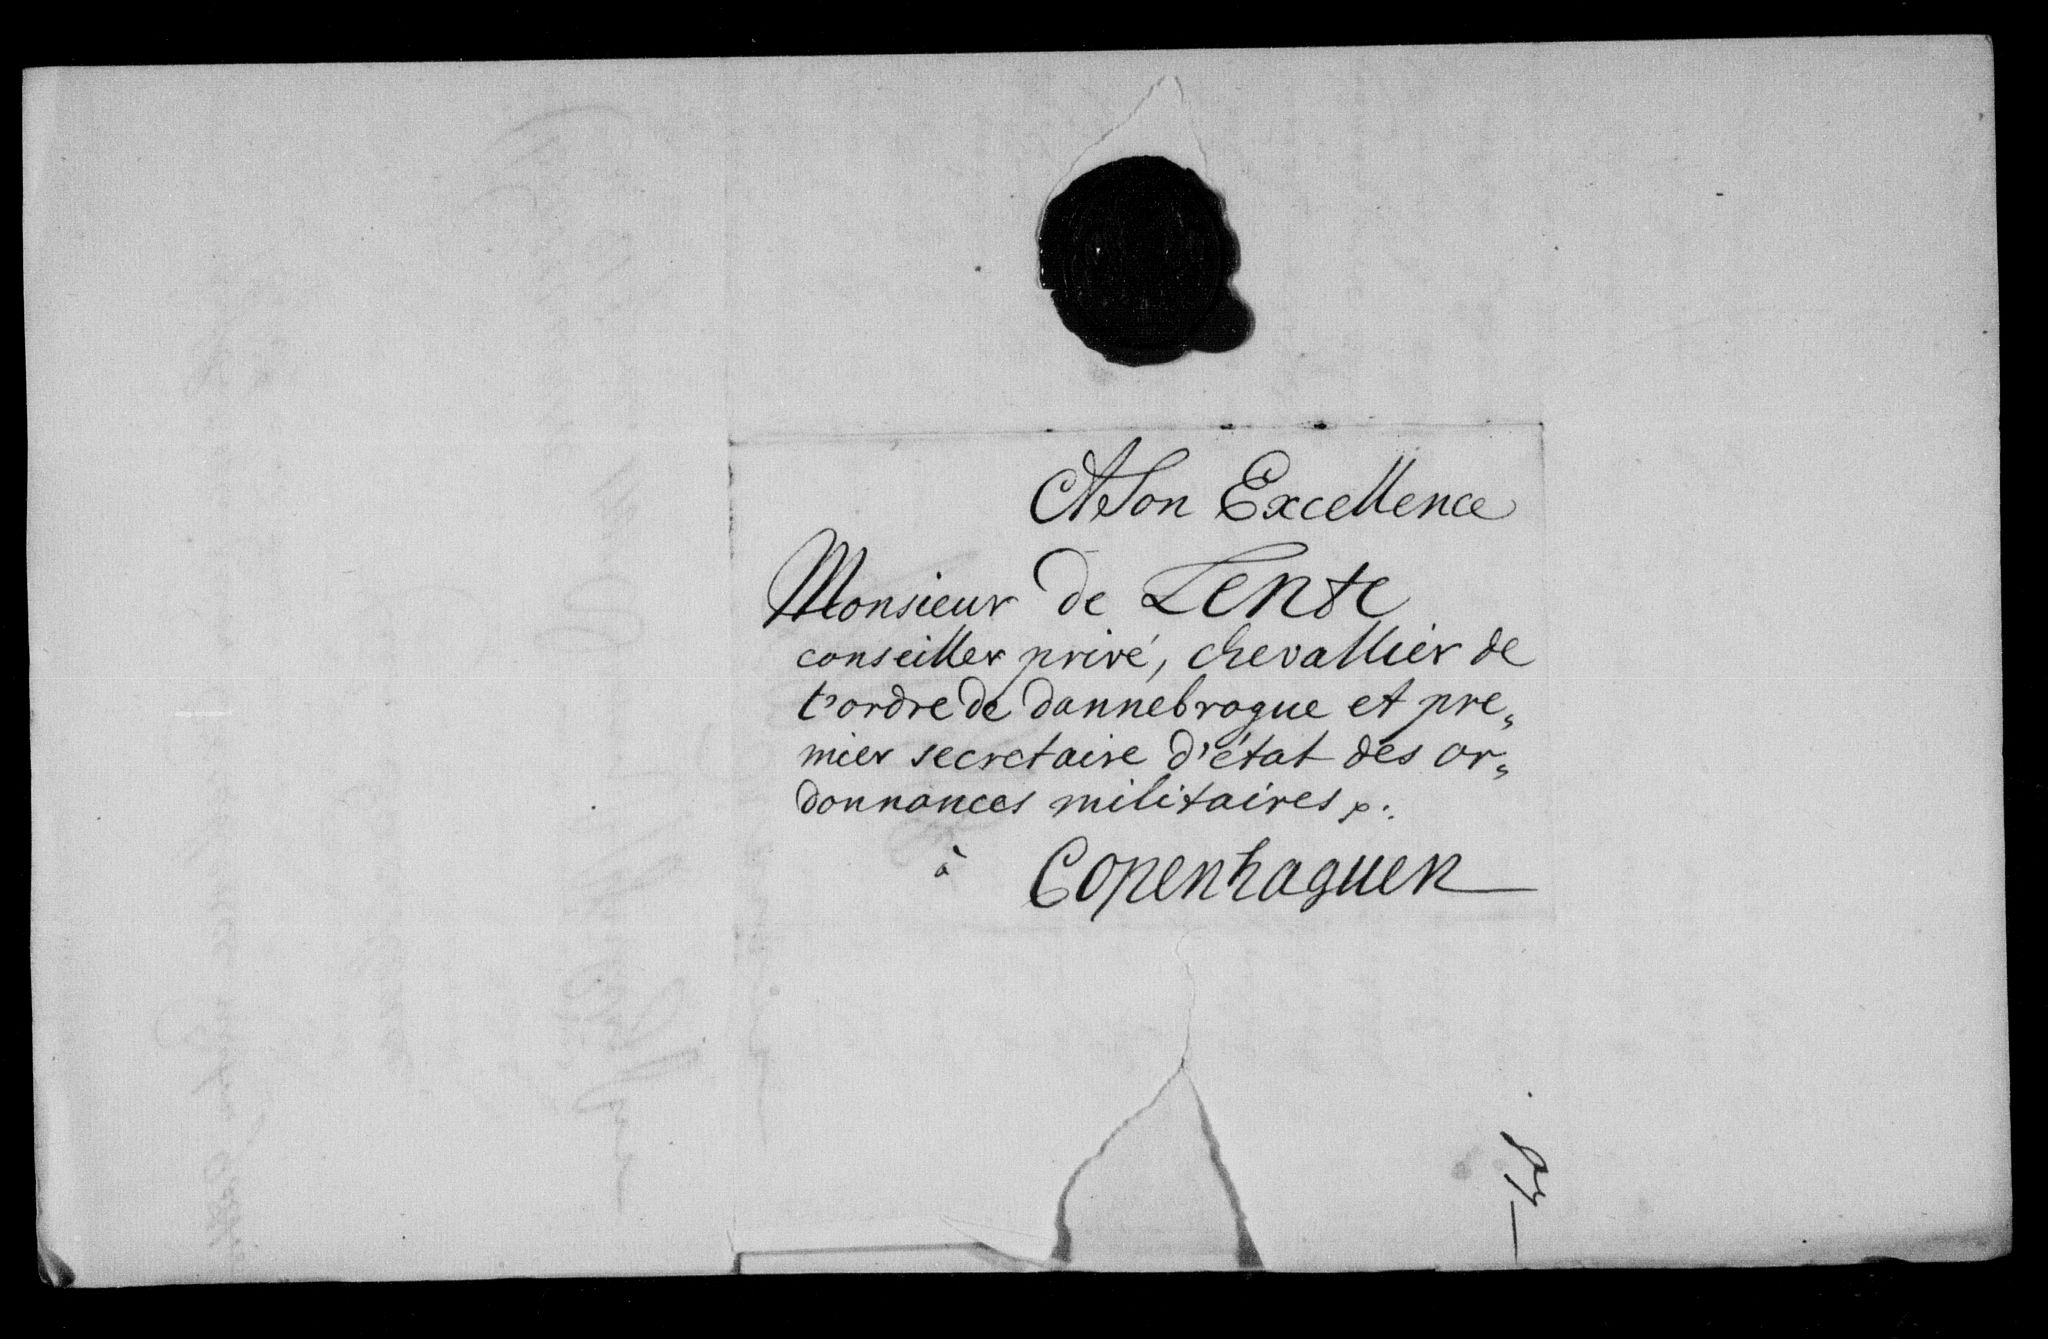 A Son Excellence
Monsieur de Lente
conseiller privé, chevallier de
l'ordre de dannebrogue et pre„
mier secretaire d'état des or„
donnances militaires p.
à Copenhaguen